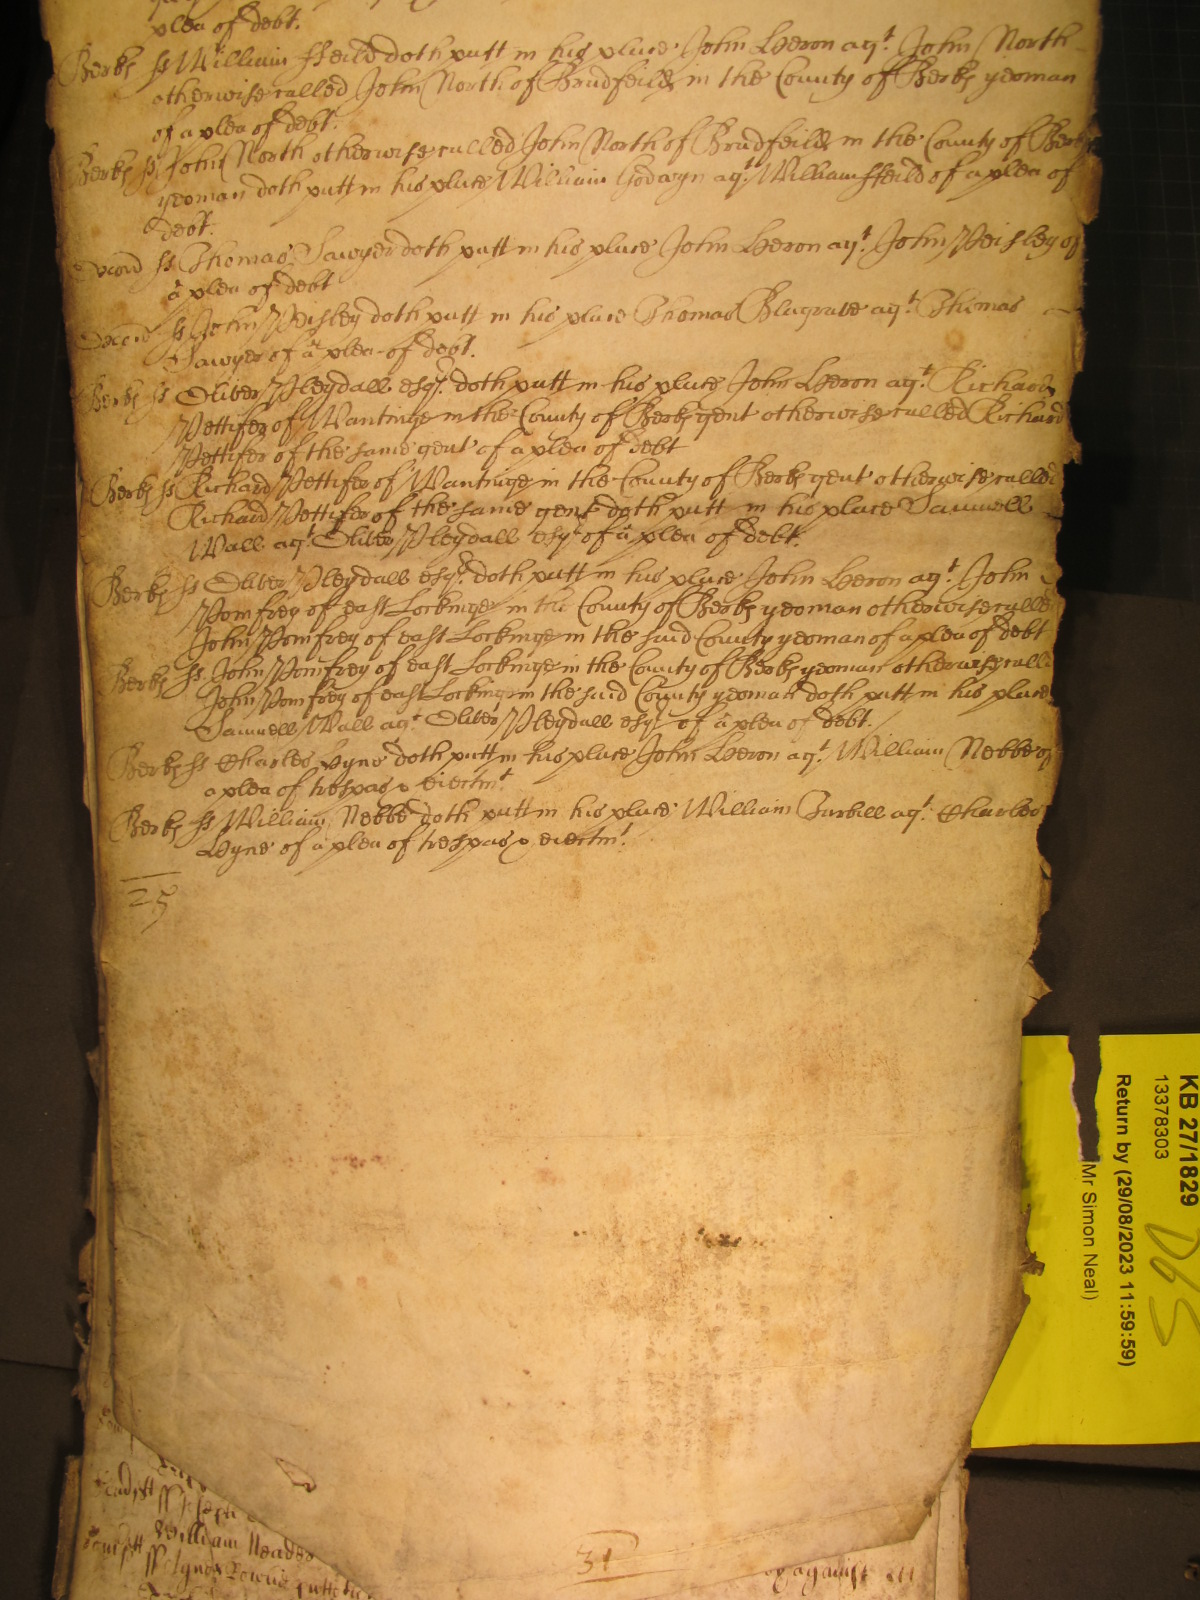 plea of debt.
Berks ss William ffeild doth putt in his place John Heron agt. John North
otherwise called John North of Bradfeild in the County of Berks yeoman
of a plea of debt.
Berks ss John North otherwise called John North of Bradfeild in the County of Berks
yeoman doth putt in his place William Godwyn agt. William ffeild of a plea of
debt.
Oxord ss Thomas Sawyer doth putt in his place John Heron agt. John Weisley of
a plea of debt
Oxord ss John Weisley doth putt in his place Thomas Blagrave agt. Thomas
Sawyer of a plea of debt.
Berks ss Oliver Pleydall esqr. doth putt in his place John Heron agt. Richard
Pettifer of Wantinge in the County of Berks gent otherwise called Richard
Pettifer of the same gent of a plea of debt
Berks ss Richard Pettifer of Wantinge in the County of Berks gent otherwise called
Richard Pettifer of the same gent doth putt in his place Samuell
Wall agt. Oliver Pleydall esqr of a plea of debt.
Berks ss Oliver Pleydall esqr. doth putt in his place John Heron agt. John
Pomfrey of east Lockinge in the County of Berks yeoman otherwise called
John Pomfrey of east Lockinge in the said County yeoman of a plea of debt
Berks ss John Pomfrey of east Lockinge in the County of Berks yeoman otherwise called
John Pomfrey of east Lockinge in the said County yeoman doth putt in his place
Samuell Wall agt Oliver Pleydall esqr of a plea of debt.
Berks ss Charles Hyne doth putt in his place John Heron agt. William Nebbe of
a plea of trespas & eiectmt
Berks ss William Nebbe doth putt in his place William Turbill agt. Charles
Hyne of a plea of trespas & eiectmt.
25
William Meades
31
against
KB 27/1829
13378303
Return by (29/08/2023 11:59:59)
Mr Simon Neal)
D6S